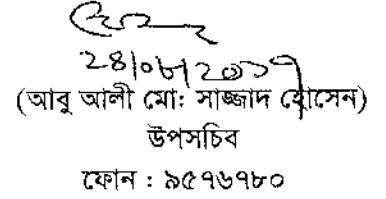 ২৪|০৮|২০১৭
(আবু আলী মো: সাজ্জাদ হোসেন)
উপসচিব
ফোন : ৯৫৭৬৭৮০